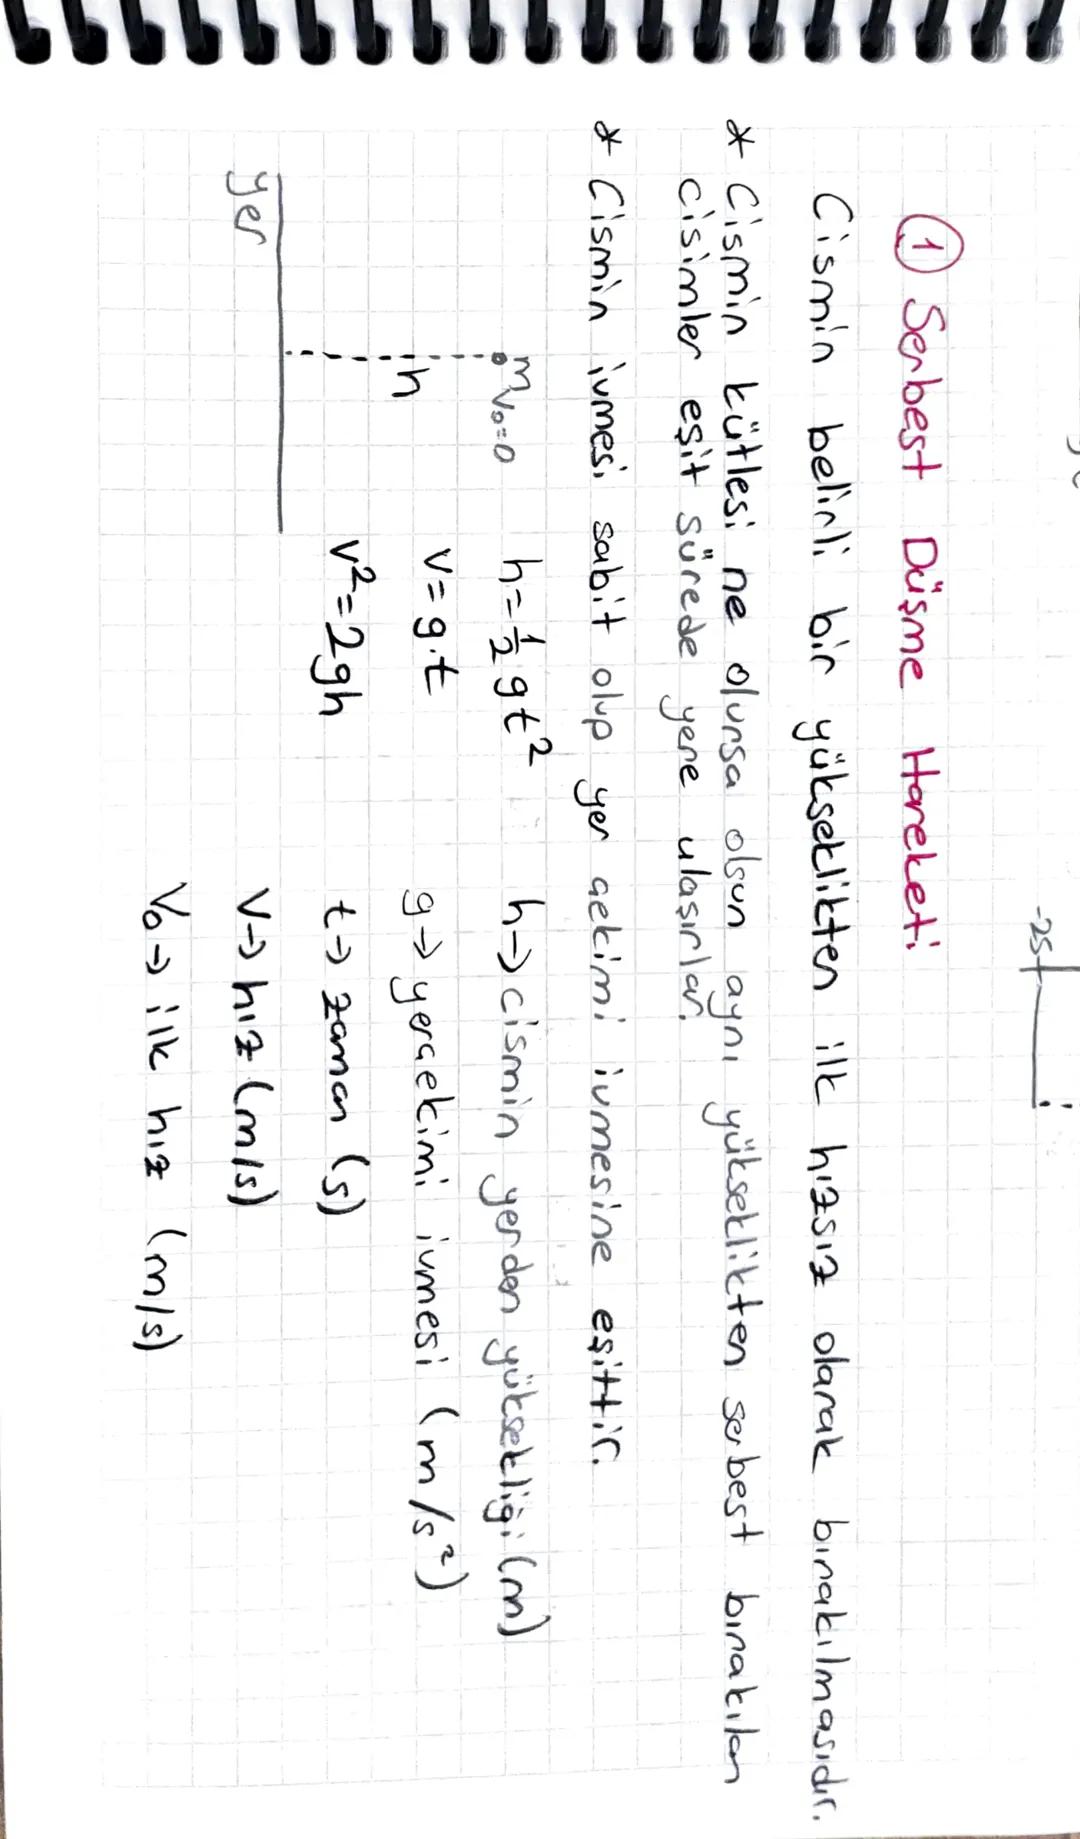 -25
① Serbest Düşme Hareketi
Cismin belirli bir yükseklikten ilk hızsız olarak bırakılmasıdır.
* Cismin kütlesi ne olursa olsun aynı yükseklikten serbest bırakılan
cisimler eşit sürede yere ulaşırlar.
* Cismin ivmesi sabit olup yer çekimi ivmesine eşittir.
m V₀=0
h
yer
h=½gt²
v=g.t
v²=2gh
h→cismin yerden yüksekliği (m)
g→yerçekimi ivmesi (m/s²)
t→zaman (s)
V→hız (m/s)
V₀→ilk hız (m/s)